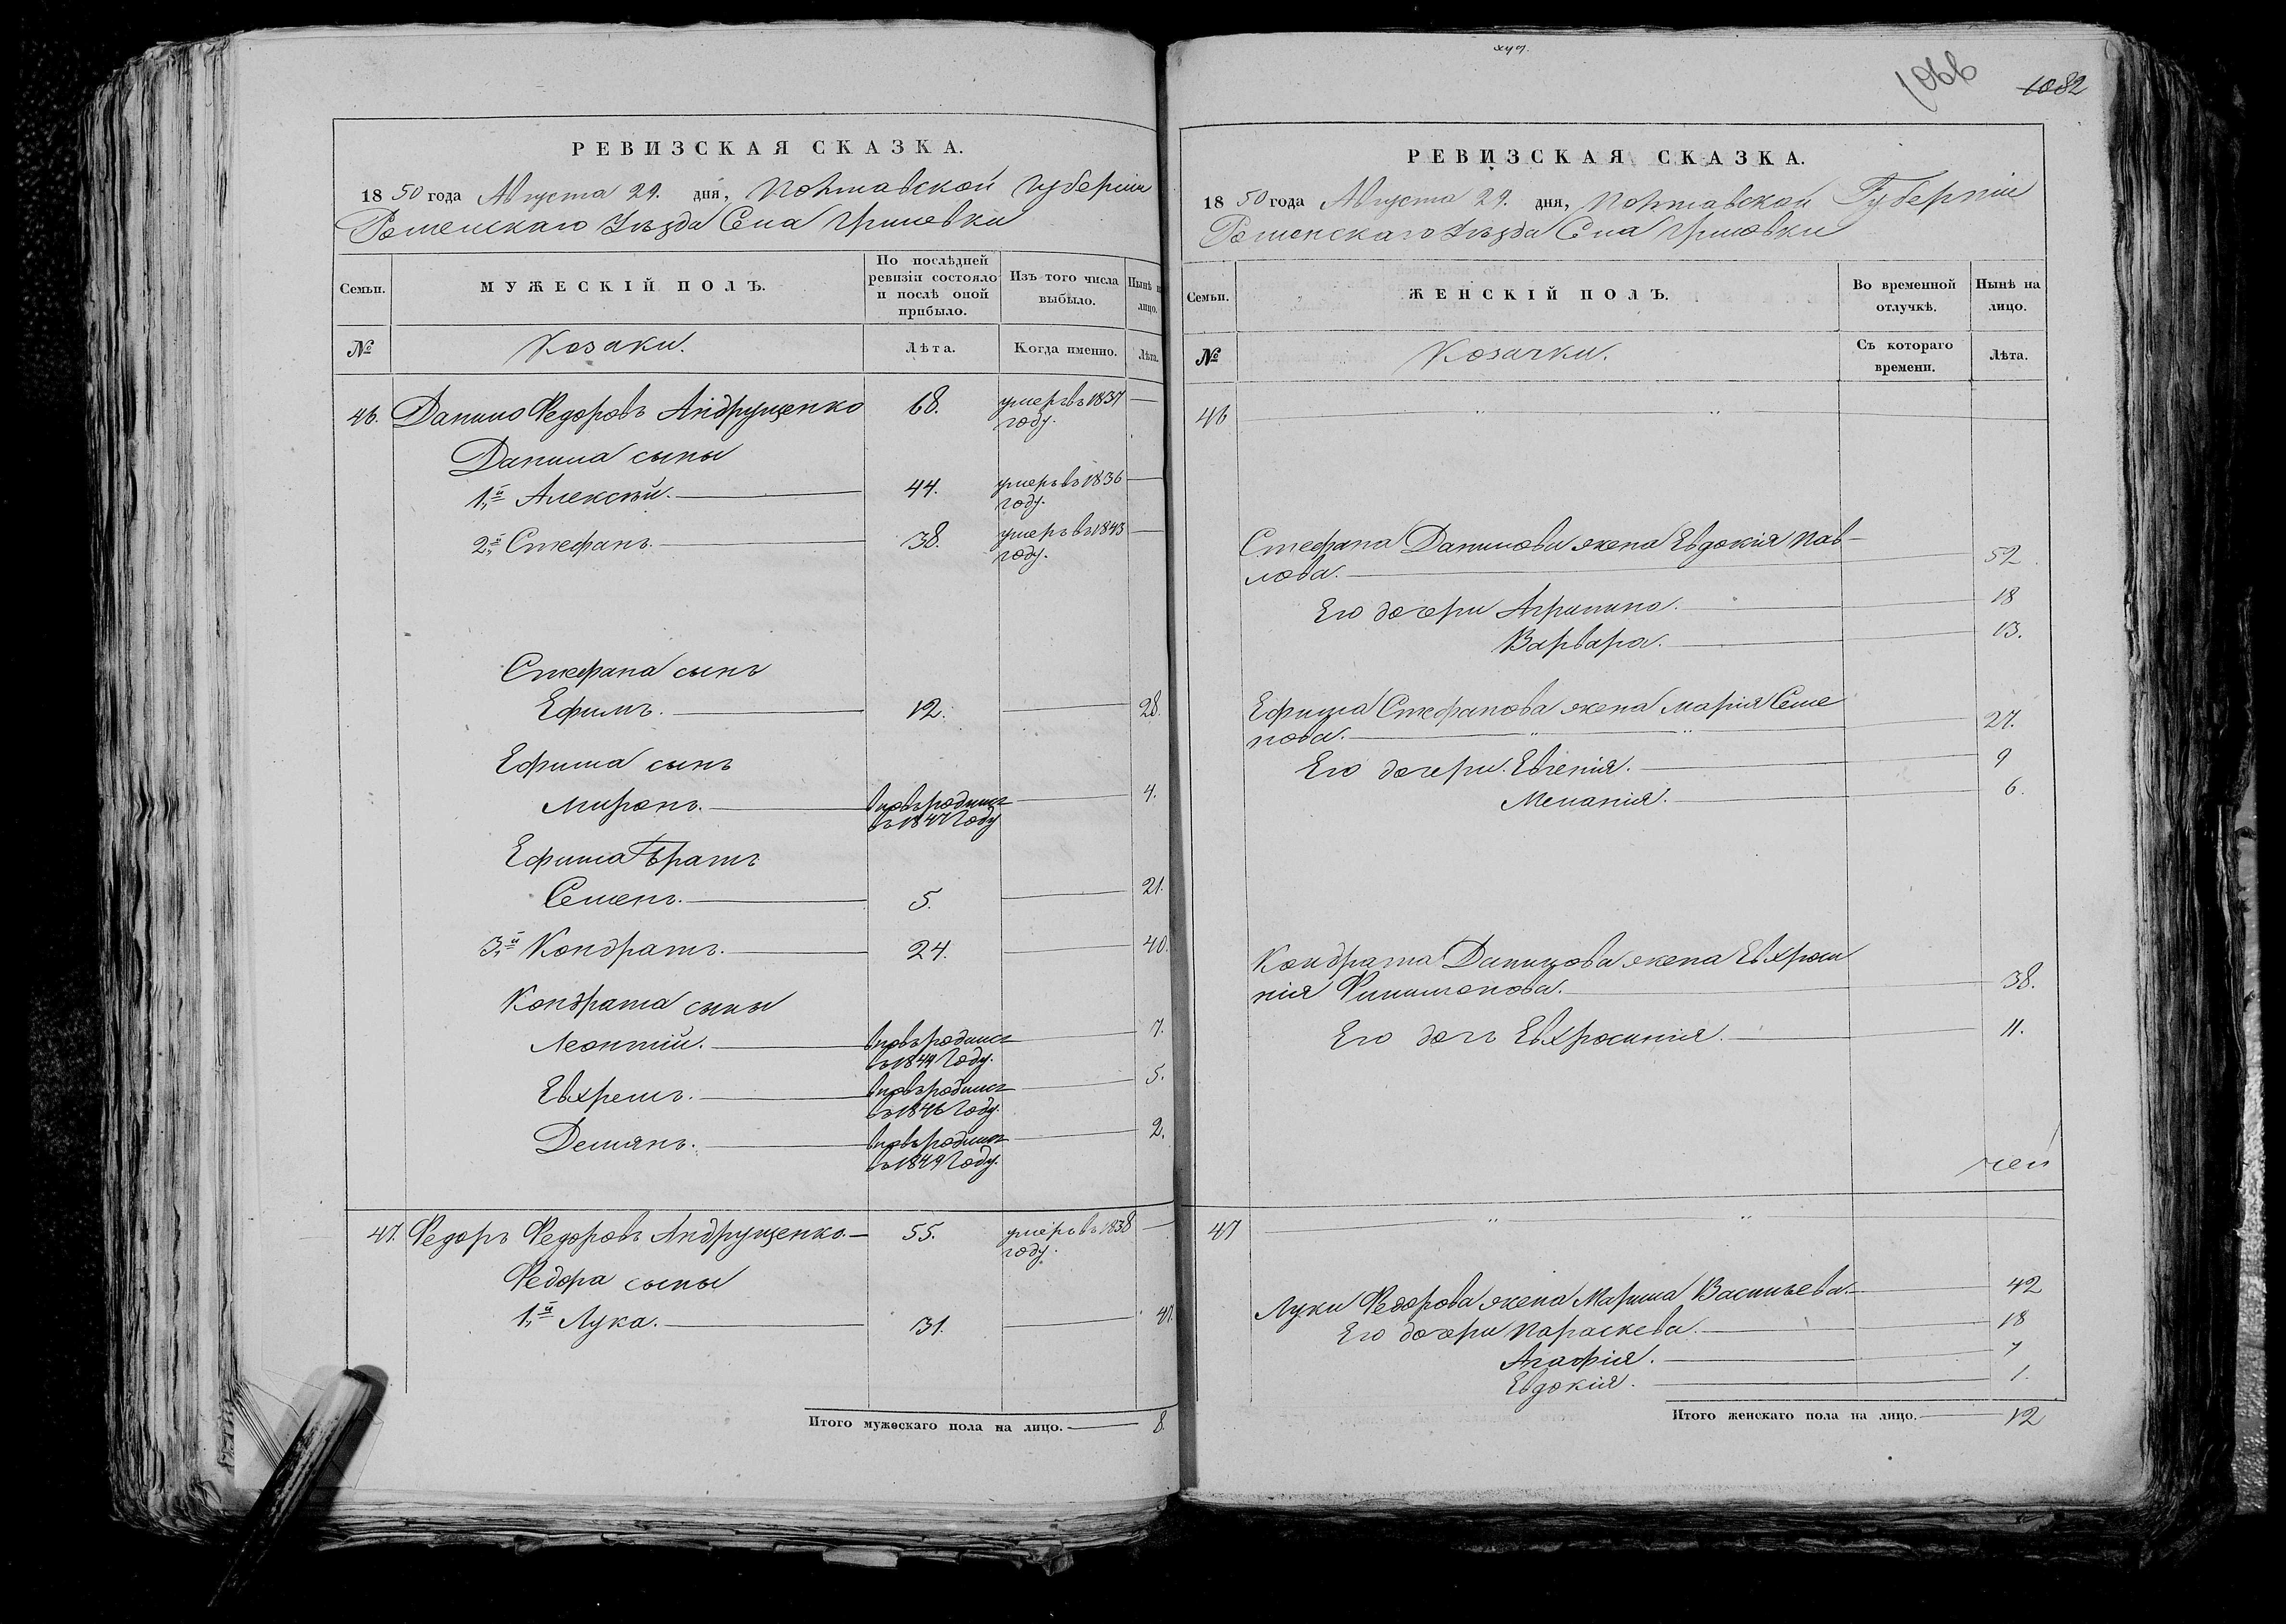 РЕВИЗСКАЯ СКАЗКА.
1850 года Августа 29. дня, Полтавской Губерніи
Роменскаго Уѣзда Села Гриневки
Семьи.
МУЖЕСКІЙ ПОЛЪ.
По послѣдней ревизіи состояло и послѣ оной прибыло.
Изъ того числа выбыло.
Нынѣ на лицо.
№
Козаки.
Лѣта.
Когда именно.
Лѣта.
46. Данило Федоровъ Андрущенко 68. умеръ въ 1837 —
году.
Данила сыны
1й Алексѣй. 44. умеръ въ 1836 —
году.
2й Стефанъ. 38. умеръ въ 1843 —
году.
Стефана сынъ
Ефимъ. 12. — 28.
Ефима сынъ
Миронъ. вновь родился — 4.
въ 1847 Году
Ефима братъ
Семенъ. 5. — 21.
3й Кондратъ. 24. — 40.
Кондрата сыны
Леонтій. вновь родился — 7.
въ 1844 Году.
Евхремъ. вновь родился — 5.
въ 1846 Году.
Демянъ. вновь родился — 2.
въ 1849 Году.
47. Федоръ Федоровъ Андрущенко. 55. умеръ въ 1838 —
году.
Федора сыны
1й Лука. 31. — 47.
Итого мужескаго пола на лицо. — 8.
1066
1082
РЕВИЗСКАЯ СКАЗКА.
1850 года Августа 29. дня, Полтавской Губерніи
Роменскаго Уѣзда Села Гриневки
Семьи.
ЖЕНСКІЙ ПОЛЪ.
Во временной отлучкѣ.
Нынѣ на лицо.
№
Козачки.
Съ котораго времени.
Лѣта.
46 " "
Стефана Данилова жена Евдокія Пав-
лова. 52
Его дочери Агрипина. 18
Варвара. 13.
Ефима Стефанова жена Марія Семе
нова. " " 27.
Его дочери. Евгенія. 9
Меланія. 6.
Кондрата Данилова жена Евхроси
нія Филимонова. 38.
Его дочь Евхросинія. 11.
47 " "
Луки Федорова жена Марина Васильева. 42
Его дочери Параскева. 18
Агафія. 7
Евдокія. 1.
Итого женскаго пола на лицо. — 12